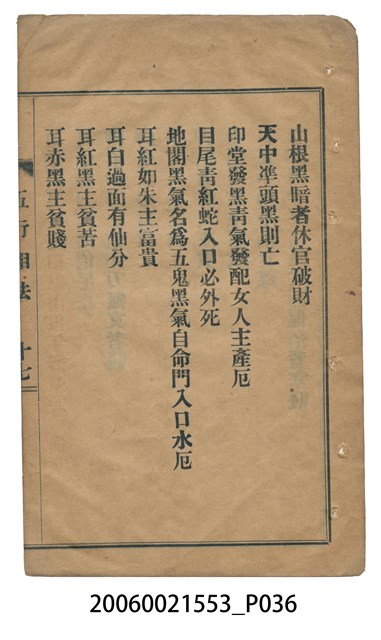 山根黑暗者休官破財
天中準頭黑則亡
印堂發黑靑氣發配女人主產厄
目尾靑紅蛇入口必外死
地閣黑氣名爲五鬼黑氣自命門入口水厄
耳紅如朱主富貴
耳白過面有仙分
耳紅黑主貧苦
耳赤黑主貧賤
五行相法
十七
20060021553_P036